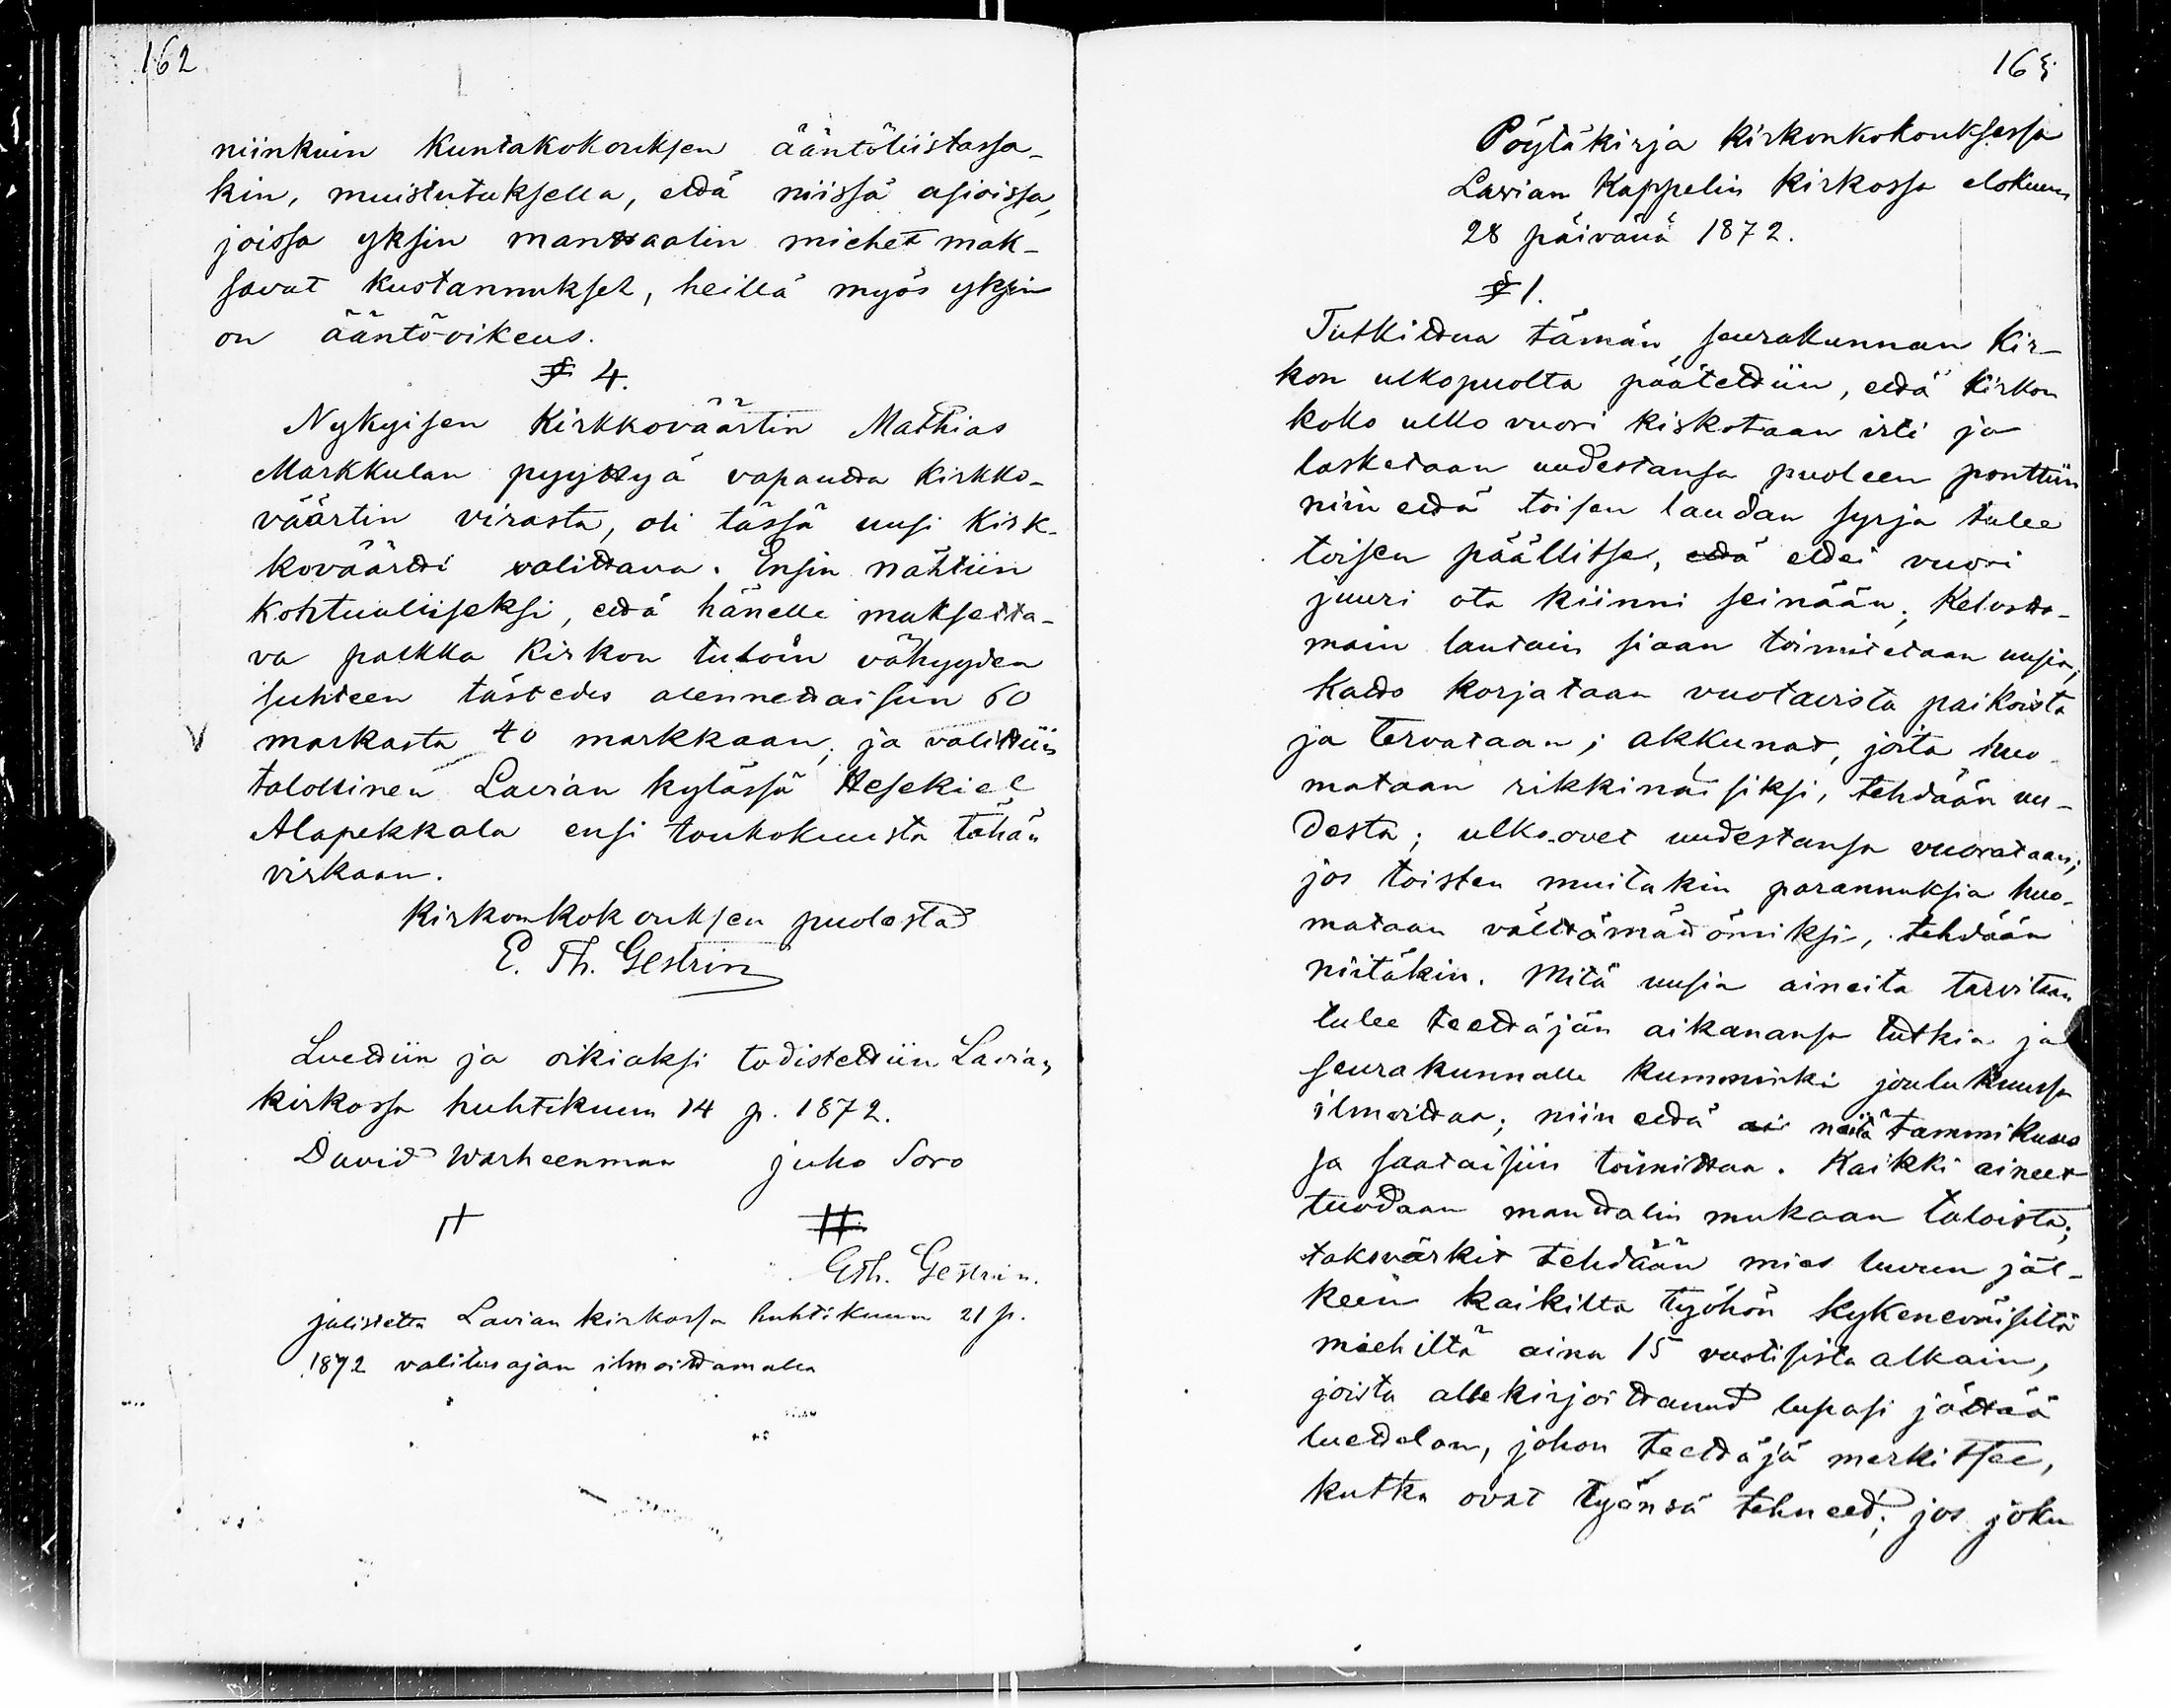 162
niinkuin kuntakokouksen ääntöliistassa-
kin, muistutuksella, että niissä asioissa,
joissa yksin manttaalin miehet mak-
savat kustannukset, heillä myös yksin
on ääntövikeus.
§ 4.
Nykyisen Kirkkoväärtin Mathias
Markkulan pyyttyä vapautta kirkko-
väärtin virasta, oli tässä uusi Kirk-
kovääртti valittava. Ensin nähtiin
kohtuuliseksi, että hänelle maksetta-
va palkka Kirkon tuloin vähyyden
suhteen tästedes alennettaisiin 60
markasta 40 markkaan; ja valittiin
talollinen Lavian kylässä Hesekiel
Alapekkala ensi toukokuusta tähän
virkaan.
Kirkonkokouksen puolesta
E. Th. Gestrin
Luettiin ja oikiaksi todistettiin Lavian
kirkossa huhtikuun 14 p. 1872.
David Warheenmaa Juho Soro
E Th. Gestrin.
julistettu Lavian kirkossa huhtikuun 21 p.
1872 valitusajan ilmoittamalla
163
Pöytäkirja kirkonkokouksessa
Lavian Kappelin kirkossa elokuun
28 päivänä 1872.
§ 1.
Tutkittua tämän seurakunnan kir-
kon ulkopuolta päätettiin, että kirkon
koko ulko vuori kiskotaan irti ja
lasketaan uudestansa puoleen ponttiin
niin että toisen laudan syrjä tulee
toisen päällitse, että ettei vuori
juuri ota kiinni seinään; Kelvotto-
main lautain siaan toimitetaan uusia;
Katto korjataan vuotavista paikoista
ja tervataan; akkunat, joita huo-
mataan rikkinäisiksi, tehdään uu-
desta; ulko-ovet uudestansa vuorataan;
jos toisten muitakin parannuksia huo-
mataan välttämättömiksi, tehdään
niitäkin. Mitä uusia aineita tarvitaan
tulee teettäjän aikanansa tutkia ja
seurakunnalle kumminki joulukuussa
ilmoittaa; niin että ai niitä tammikuus
sa saataisiin toimittaa. Kaikki aineet
tuodaan manttalin mukaan taloista;
taksvärkit tehdään mies luvun jäl-
keen kaikilta työhön kykeneväisiltä
miehiltä aina 15 vuotisista alkain,
joista allekirjoittanut lupasi jättää
luettelon, johon teettäjä merkitsee,
kutka ovat työnsä tehneet; jos joku